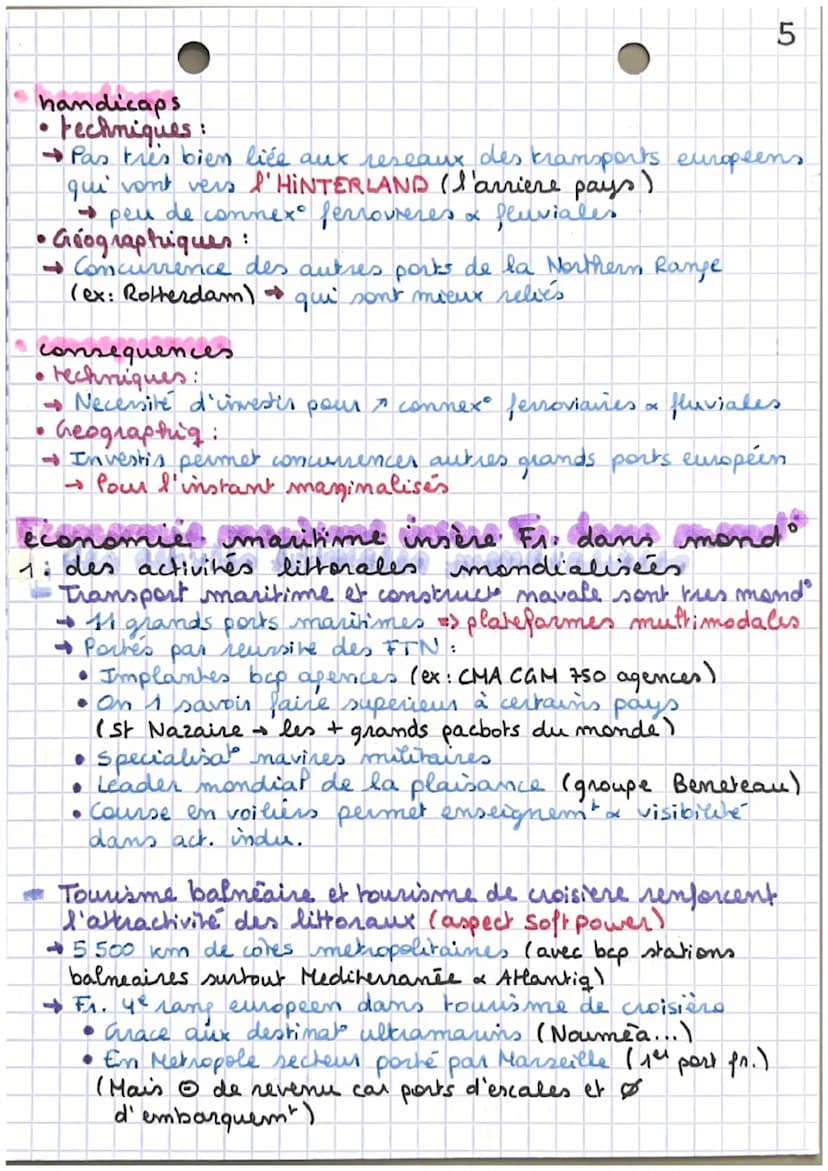 5
• handicaps
• techniques :
→ Pas très bien liée aux reseaux des transports européens
qui vont vers l'HINTERLAND (l'arriere pays)
→ peu de connex° ferrovieres & fluviales
• Géographiques :
→ Concurrence des autres ports de la Northern Range
(ex: Rotterdam) → qui sont mieux reliés
• consequences
• techniques :
→ Necessité d'investir pour ↗ connex° ferroviaries & fluviales
• Geographiq :
→ Investir permet concurrencer autres grands ports européen
→ Pour l'instant marginalisés
économie maritime insère Fr. dans mond°
1: des activités littorales mondialisées
- Transport maritime et construct° navale sont tres mond°
→ 11 grands ports maritimes => plateformes multimodales
→ Portés par reussite des FTN :
• Implantes bcp agences (ex: CMA CGM 750 agences)
• On 1 savoir faire superieur à certains pays
(St Nazaire → les + grands pacbots du monde)
• Specialisat° navires militaires
• Leader mondial de la plaisance (groupe Beneteau)
• Course en voiliers permet enseignemt & visibilité
dans act. indu.
- Tourisme balnéaire et tourisme de croisiere renforcent
l'attractivité des littoraux (aspect Soft Power)
→ 5 500 km de côtes metropolitaines (avec bcp stations
balneaires surtout Mediterranée & Atlantiq)
→ Fr. 4e rang europeen dans tourisme de croisière
• Grace aux destinat° ultramarins (Nouméa...)
• En Metropole secteur porté par Marseille (1er port fr.)
(Mais ⊖ de revenu car ports d'escales et Ø
d'embarquemt)